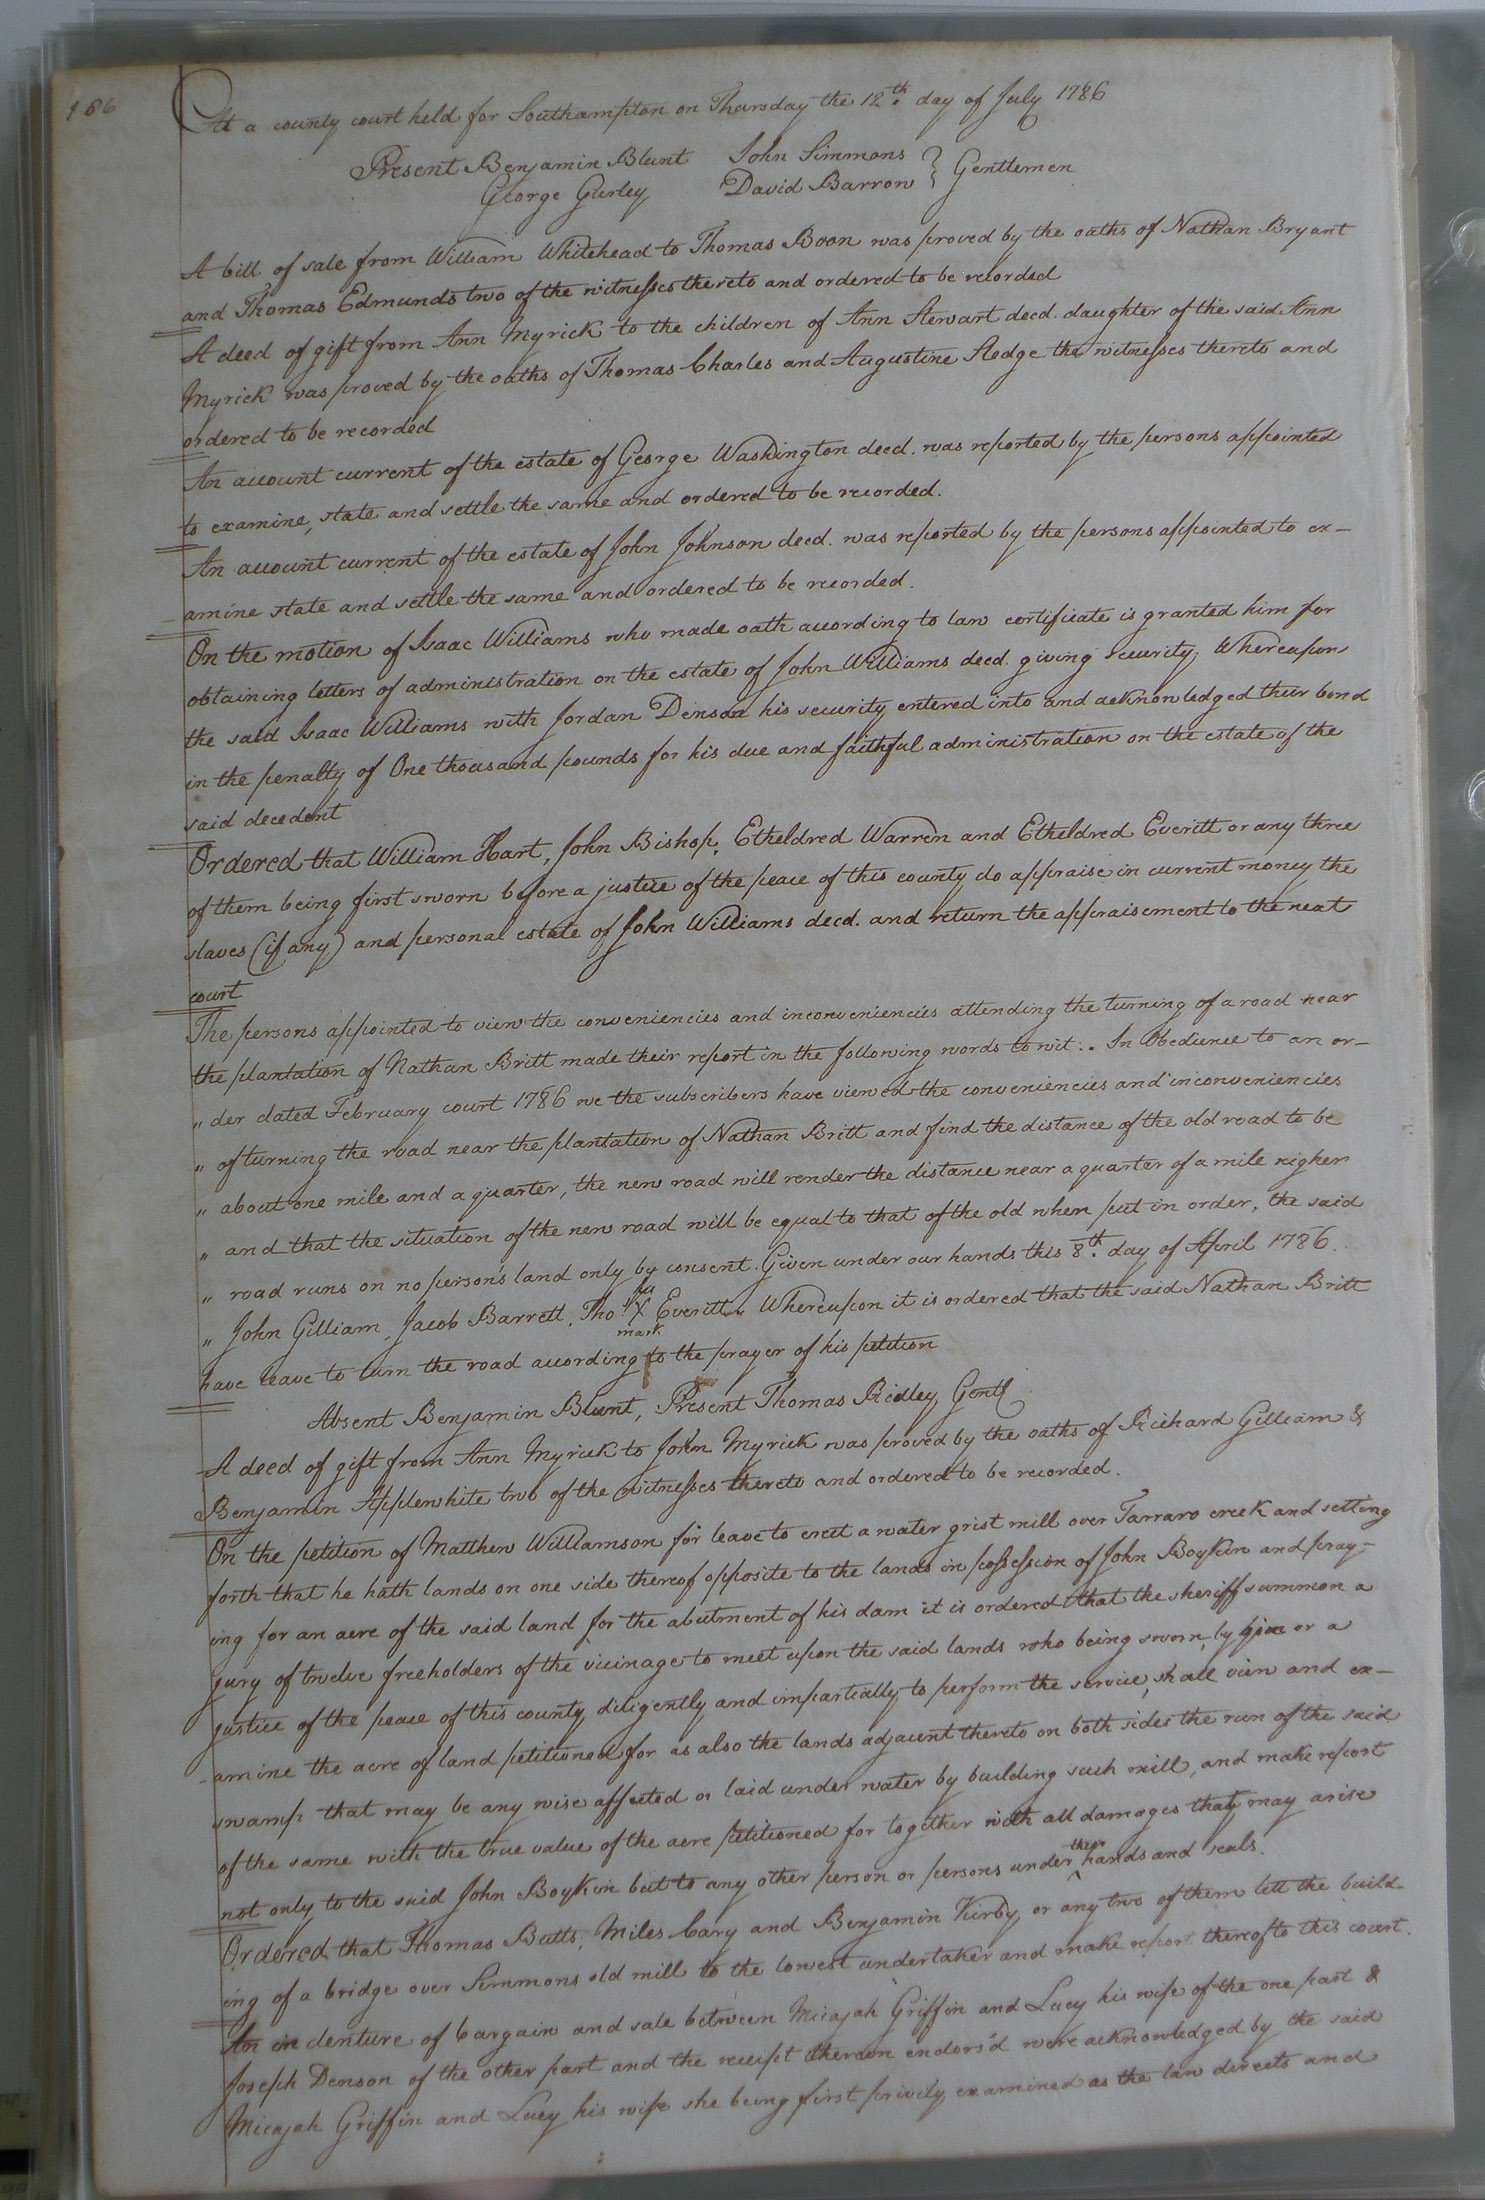 186
At a county court held for Southampton on Thursday the 12th. day of July 1786
Present Benjamin Blunt John Simmons } Gentlemen
George Gurley David Barrow
A bill of sale from William Whitehead to Thomas Boon was proved by the oaths of Nathan Bryant
and Thomas Edmunds two of the witnesses thereto and ordered to be recorded
A deed of gift from Ann Myrick to the children of Ann Stewart decd. daughter of the said Ann
Myrick was proved by the oaths of Thomas Charles and Augustine the witnesses thereto and
ordered to be recorded
An account current of the estate of George Washington decd. was reported by the persons appointed
to examine, state and settle the same and ordered to be recorded.
An account current of the estate of John Johnson decd. was reported by the persons appointed to ex-
amine state and settle the same and ordered to be recorded.
On the motion of Isaac Williams who made oath according to law certificate is granted him for
obtaining letters of administration on the estate of John Williams decd. giving security; Whereupon
the said Isaac Williams with Jordan Denson his security entered into and acknowledged their bond
in the penalty of One thousand pounds for his due and faithful administration on the estate of the
said decedent
Ordered that William Hart, John Bishop, Etheldred Warren and Etheldred Everitt or any three
of them being first sworn before a justice of the peace of this county do appraise in current money the
slaves (if any) and personal estate of John Williams decd. and return the appraisement to the next
court
The persons appointed to view the conveniencies and inconveniencies attending the turning of a road near
the plantation of Nathan Britt made their report in the following words to wit: "In Obedience to an or-
" der dated February court 1786 we the subscribers have viewed the conveniencies and inconveniencies
" of turning the road near the plantation of Nathan Britt and find the distance of the old road to be
" about one mile and a quarter, the new road will render the distance near a quarter of a mile nigher
" and that the situation of the new road will be equal to that of the old when put in order, the said
" road runs on no person's land only by consent. Given under our hands this 8th. day of April 1786.
" John Gilliam, Jacob Barrett, Thos. his X mark Everitt" Whereupon it is ordered that the said Nathan Britt
have leave to turn the road according to the prayer of his petition
Absent Benjamin Blunt, Present Thomas Ridley Gentl
A deed of gift from Ann Myrick to John Myrick was proved by the oaths of Richard Gilliam &
Benjamin Applewhite two of the witnesses thereto and ordered to be recorded.
On the petition of Matthew Williamson for leave to erect a water grist mill over Tarraro creek and setting
forth that he hath lands on one side thereof opposite to the lands in possession of John Boykin and pray-
ing for an acre of the said land for the abutment of his dam it is ordered that the sheriff summon a
jury of twelve freeholders of the vicinage to meet upon the said lands who being sworn by him or a
justice of the peace of this county diligently and impartially to perform the service, shall view and ex-
amine the acre of land petitioned for as also the lands adjacent thereto on both sides the run of the said
swamp that may be any wise affected or laid under water by building such mill, and make report
of the same with the true value of the acre petitioned for together with all damages that may arise
not only to the said John Boykin but to any other person or persons under their hands and seals.
Ordered that Thomas Butts, Miles Cary and Benjamin Kirby or any two of them lett the build-
ing of a bridge over Simmons old mill to the lowest undertaker and make report thereof to this court.
An indenture of bargain and sale between Micajah Griffin and Lucy his wife of the one part &
Joseph Denson of the other part and the receipt thereon endors'd were acknowledged by the said
Micajah Griffin and Lucy his wife she being first privily examined as the law directs and